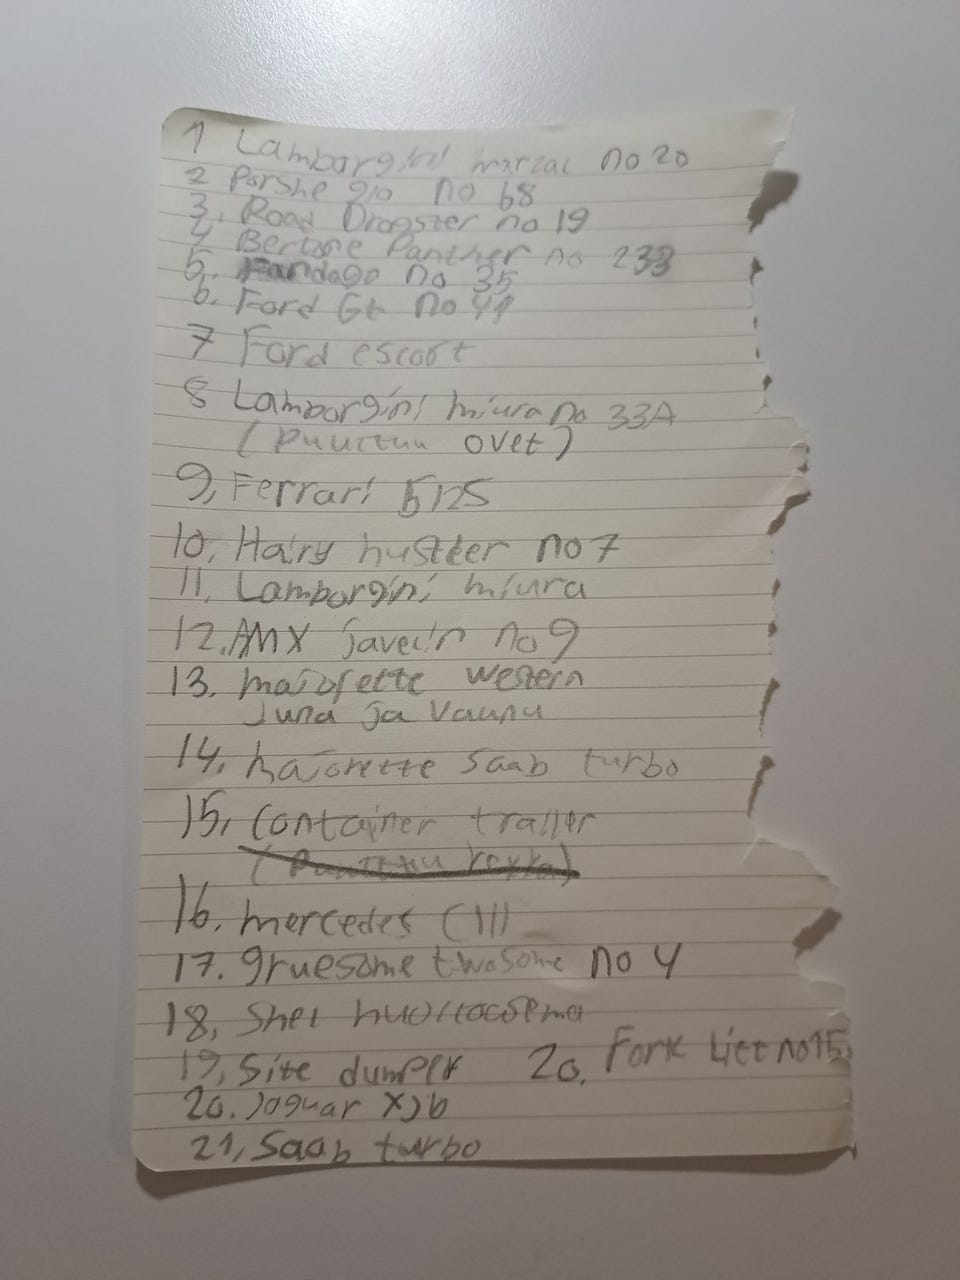 1 Lamborgini marzal no 20
2 Porshe 910 no 68
3. Road Dragster no 19
4 Bertone Panther no 233
5. Fandago no 35
6. Ford Gt no 41
7 Ford escort
8 Lamborgini miura no 33A
(puuttuu ovet)
9, Ferrari 512S
10. Hairy hustler no 7
11, Lamborgini miura
12. AMX javelin no 9
13. majorette western
Juna ja Vaunu
14. majorette Saab turbo
15, Container trailer
(Puuttuu
16. mercedes C111
17. gruesome twosome no 4
18, Shel huoltoasema
19, Site dumper 20. Fork Lift no 15
20. Jaguar XJ6
21, Saab turbo